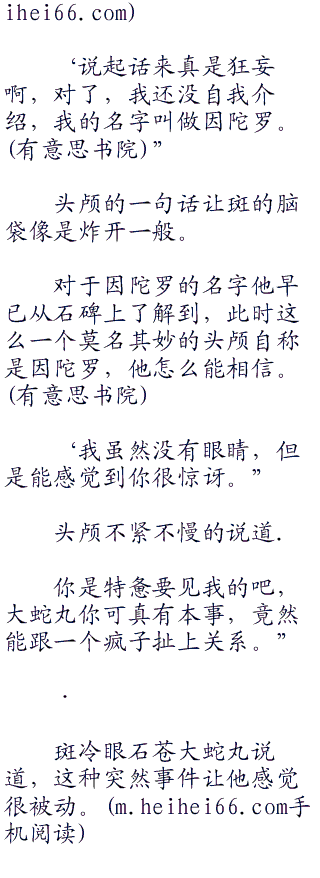 ihei66.com)
‘说起话来真是狂妄
啊，对了，我还没自我介
绍，我的名字叫做因陀罗。
(有意思书院)”
头颅的一句话让斑的脑
袋像是炸开一般。
对于因陀罗的名字他早
已从石碑上了解到，此时这
么一个莫名其妙的头颅自称
是因陀罗，他怎么能相信。
(有意思书院)
‘我虽然没有眼睛，但
是能感觉到你很惊讶。”
头颅不紧不慢的说道.
你是特惫要见我的吧，
大蛇丸你可真有本事，竟然
能跟一个疯子扯上关系。”
.
斑冷眼石苍大蛇丸说
道，这种突然事件让他感觉
很被动。(m.heihei66.com手
机阅读)